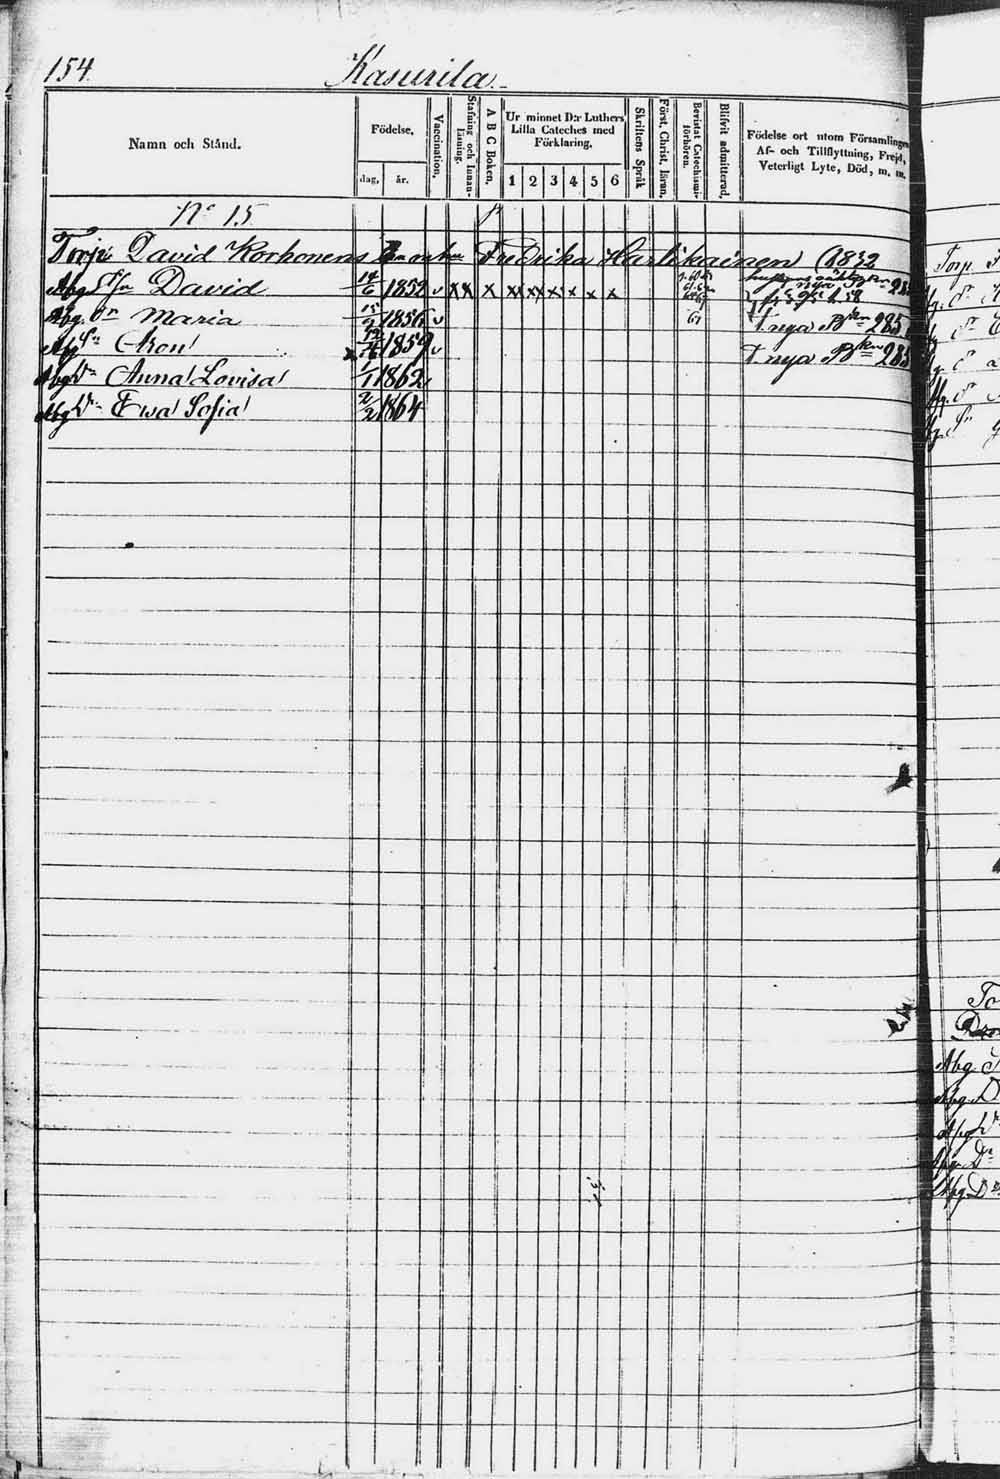 154.
Kasurila.
Namn och Stånd.
Födelse,
dag,
år.
Vaccination,
Stafning och Innan-
läsning,
A B C Boken,
Ur minnet D:r Luthers
Lilla Cateches med
Förklaring,
1 2 3 4 5 6
Skriftens Språk
Först. Christ. läran,
Bevistat Catechismi-
förhören.
Blifvit admitterad,
Födelse ort utom Församlingen
Af- och Tillflyttning, Frejd,
Veterligt Lyte, Död, m. m.
N° 15
Torp. David Korhonens Fredrika Hartikainen (1832
Abg David 14/6 1852 v x x x x x x x x x x
Abg. Maria 1856 v 61 T nya Bkn 285
1859 v T nya Bkn 285
Abg Dr Anna Lovisa 1/1 1862
Abg Dr Ewa Sofia 2/2 1864
Torp.
Abg.
Abg. D